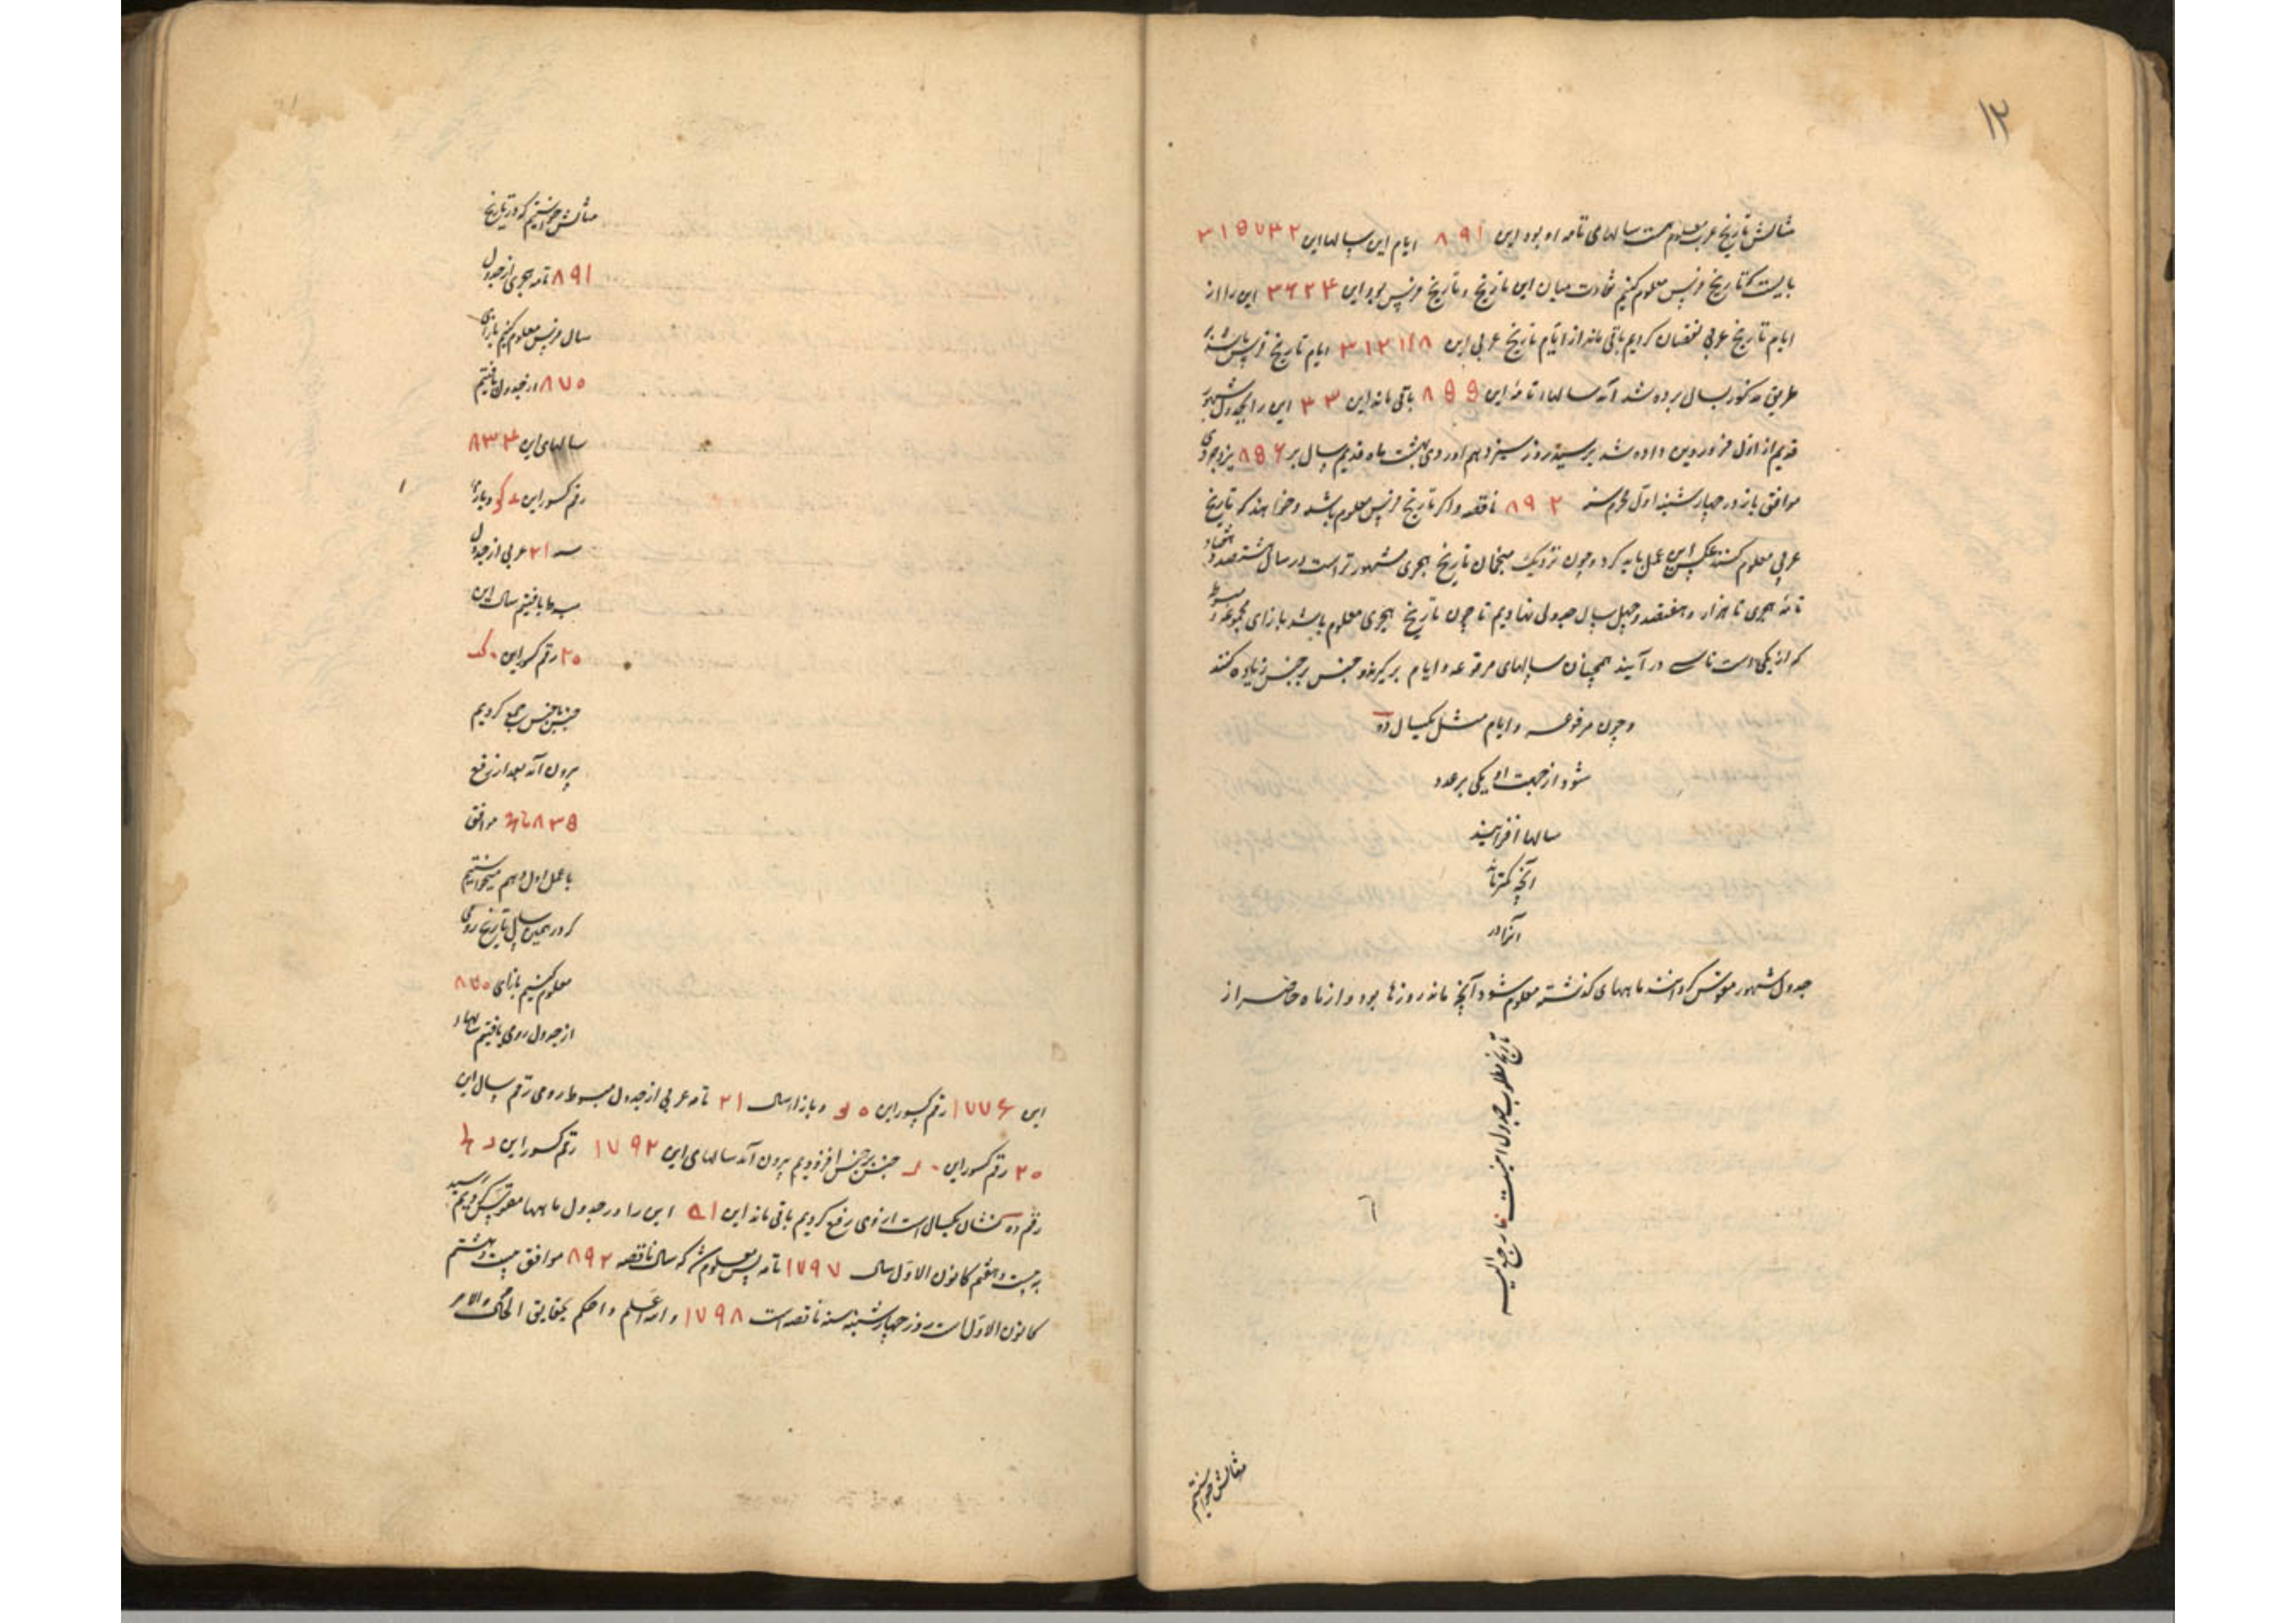 ۱۳
مثالش تاریخ عرب معلوم است سالهای تامه او بود این ۸۹۱ ایام این سالها این ۳۱۵۷۳۲
بایست که تاریخ فرس معلوم کنیم تفاوت میان این تاریخ و تاریخ فرس بود این ۳۶۲۴ این را از
ایام تاریخ عربی نقصان کردیم باقی ماند از ایام تاریخ عربی این ۳۱۲۱۰۸ ایام تاریخ فرس باشد بر
طریق مذکور بسال برده شد آمد سالهاء تامه این ۸۵۵ باقی ماند این ۳۳ این را بجدول شهور
قدیم از اول فروردین داده شد برسید روز سیزدهم اوردی بهشت ماه قدیم سال بر ۸۵۶ یزدجردی
موافق باز در چهارشنبه اول محرم سنه ۸۹۲ ناقصه و اگر تاریخ فرس معلوم باشد و خواهند که تاریخ
عربی معلوم کنند عکس این عمل باید کرد و چون نزدیک منجمان تاریخ هجری مشهورتر است در سال هشتصد و هفتاد
تامه هجری تا هزار و هفتصد و چهل سال جدولی نهادیم تا چون تاریخ هجری معلوم باشد بازای مجموعه و مبسوطه
که از یکی است تا سی در آیند همچنان سالهای مرفوعه و ایام برگیرند و جنس بر جنس زیاده کنند
و چون مرفوعه و ایام مثل یکسال ده
شود از جهت او یکی بر عدد
سالها افزایند
آنچه کمتر باشد
آنرا در
جدول شهور مقوس کردانند ماههای گذشته معلوم شود آنچه ماند روزها بود و از ماه حاضر از
تاریخ مطلوب جدول اینست فارجع الیه
مثالش خواستیم
مثالش خواستیم که در تاریخ
۸۹۱ تامه هجری از جدول
سال فرس معلوم کنیم بازای
۸۷۰ از جدول یافتیم
سالهای این ۸۳۴
رقم کسور این و بازای
۲۱ عربی از جدول
مبسوط یافتیم سال این
۲۰ رقم کسور این
جنس با جنس جمع کردیم
بیرون آمد بعد از رفع
۸۳۵ موافق
با عمل اول و هم میخواستیم
که در همین سال تاریخ رومی
معلوم کنیم بازای ۸۷۰
از جدول رومی یافتیم سالهاء
این ۱۷۷۶ رقم کسور این و بازاء سال ۲۱ تامه عربی از جدول مبسوط رومی رقم سال این
۲۰ رقم کسور این جنس بر جنس افزودیم بیرون آمد سالهای این ۱۷۹۲ رقم کسور این
رقم ده نشان یکسال است از وی رفع کردیم باقی ماند این این را در جدول ماهها مقوس کردیم رسید
به بیست و هفتم کانون الاول سال ۱۷۹۷ تامه پس معلوم شد که سال ناقصه ۸۹۲ موافق بیست و هشتم
کانون الاول است روز چهارشنبه سنه ناقصه است ۱۷۹۸ والله اعلم و احکم بحقایق الحکم والامر